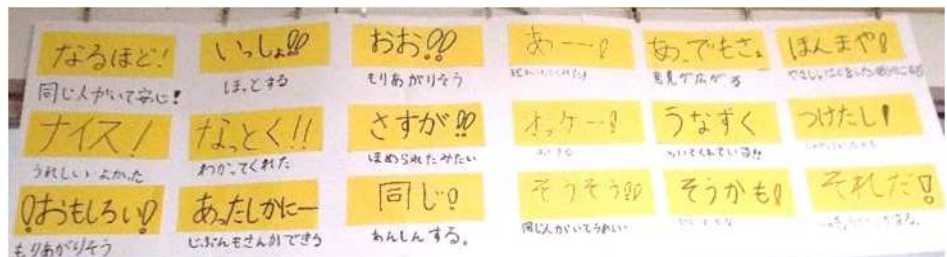 なるほど!
同じ人がいて安心!
いっしょ!!
ほっとする
おお!!
もりあがりそう
あーー!
あっ、でもさ、
意見が広がる
ほんまや!
ナイス!
うれしい よかった
なっとく!!
わかってくれた
さすが!!
ほめられたみたい
オッケー!
うなずく
きいてくれている!!
つけたし!
!おもしろい!
もりあがりそう
あったしかにー
じぶんもさんかできる
同じ!
あんしんする。
そうそう!!
同じ人がいてうれしい
そうかも!
それだ!